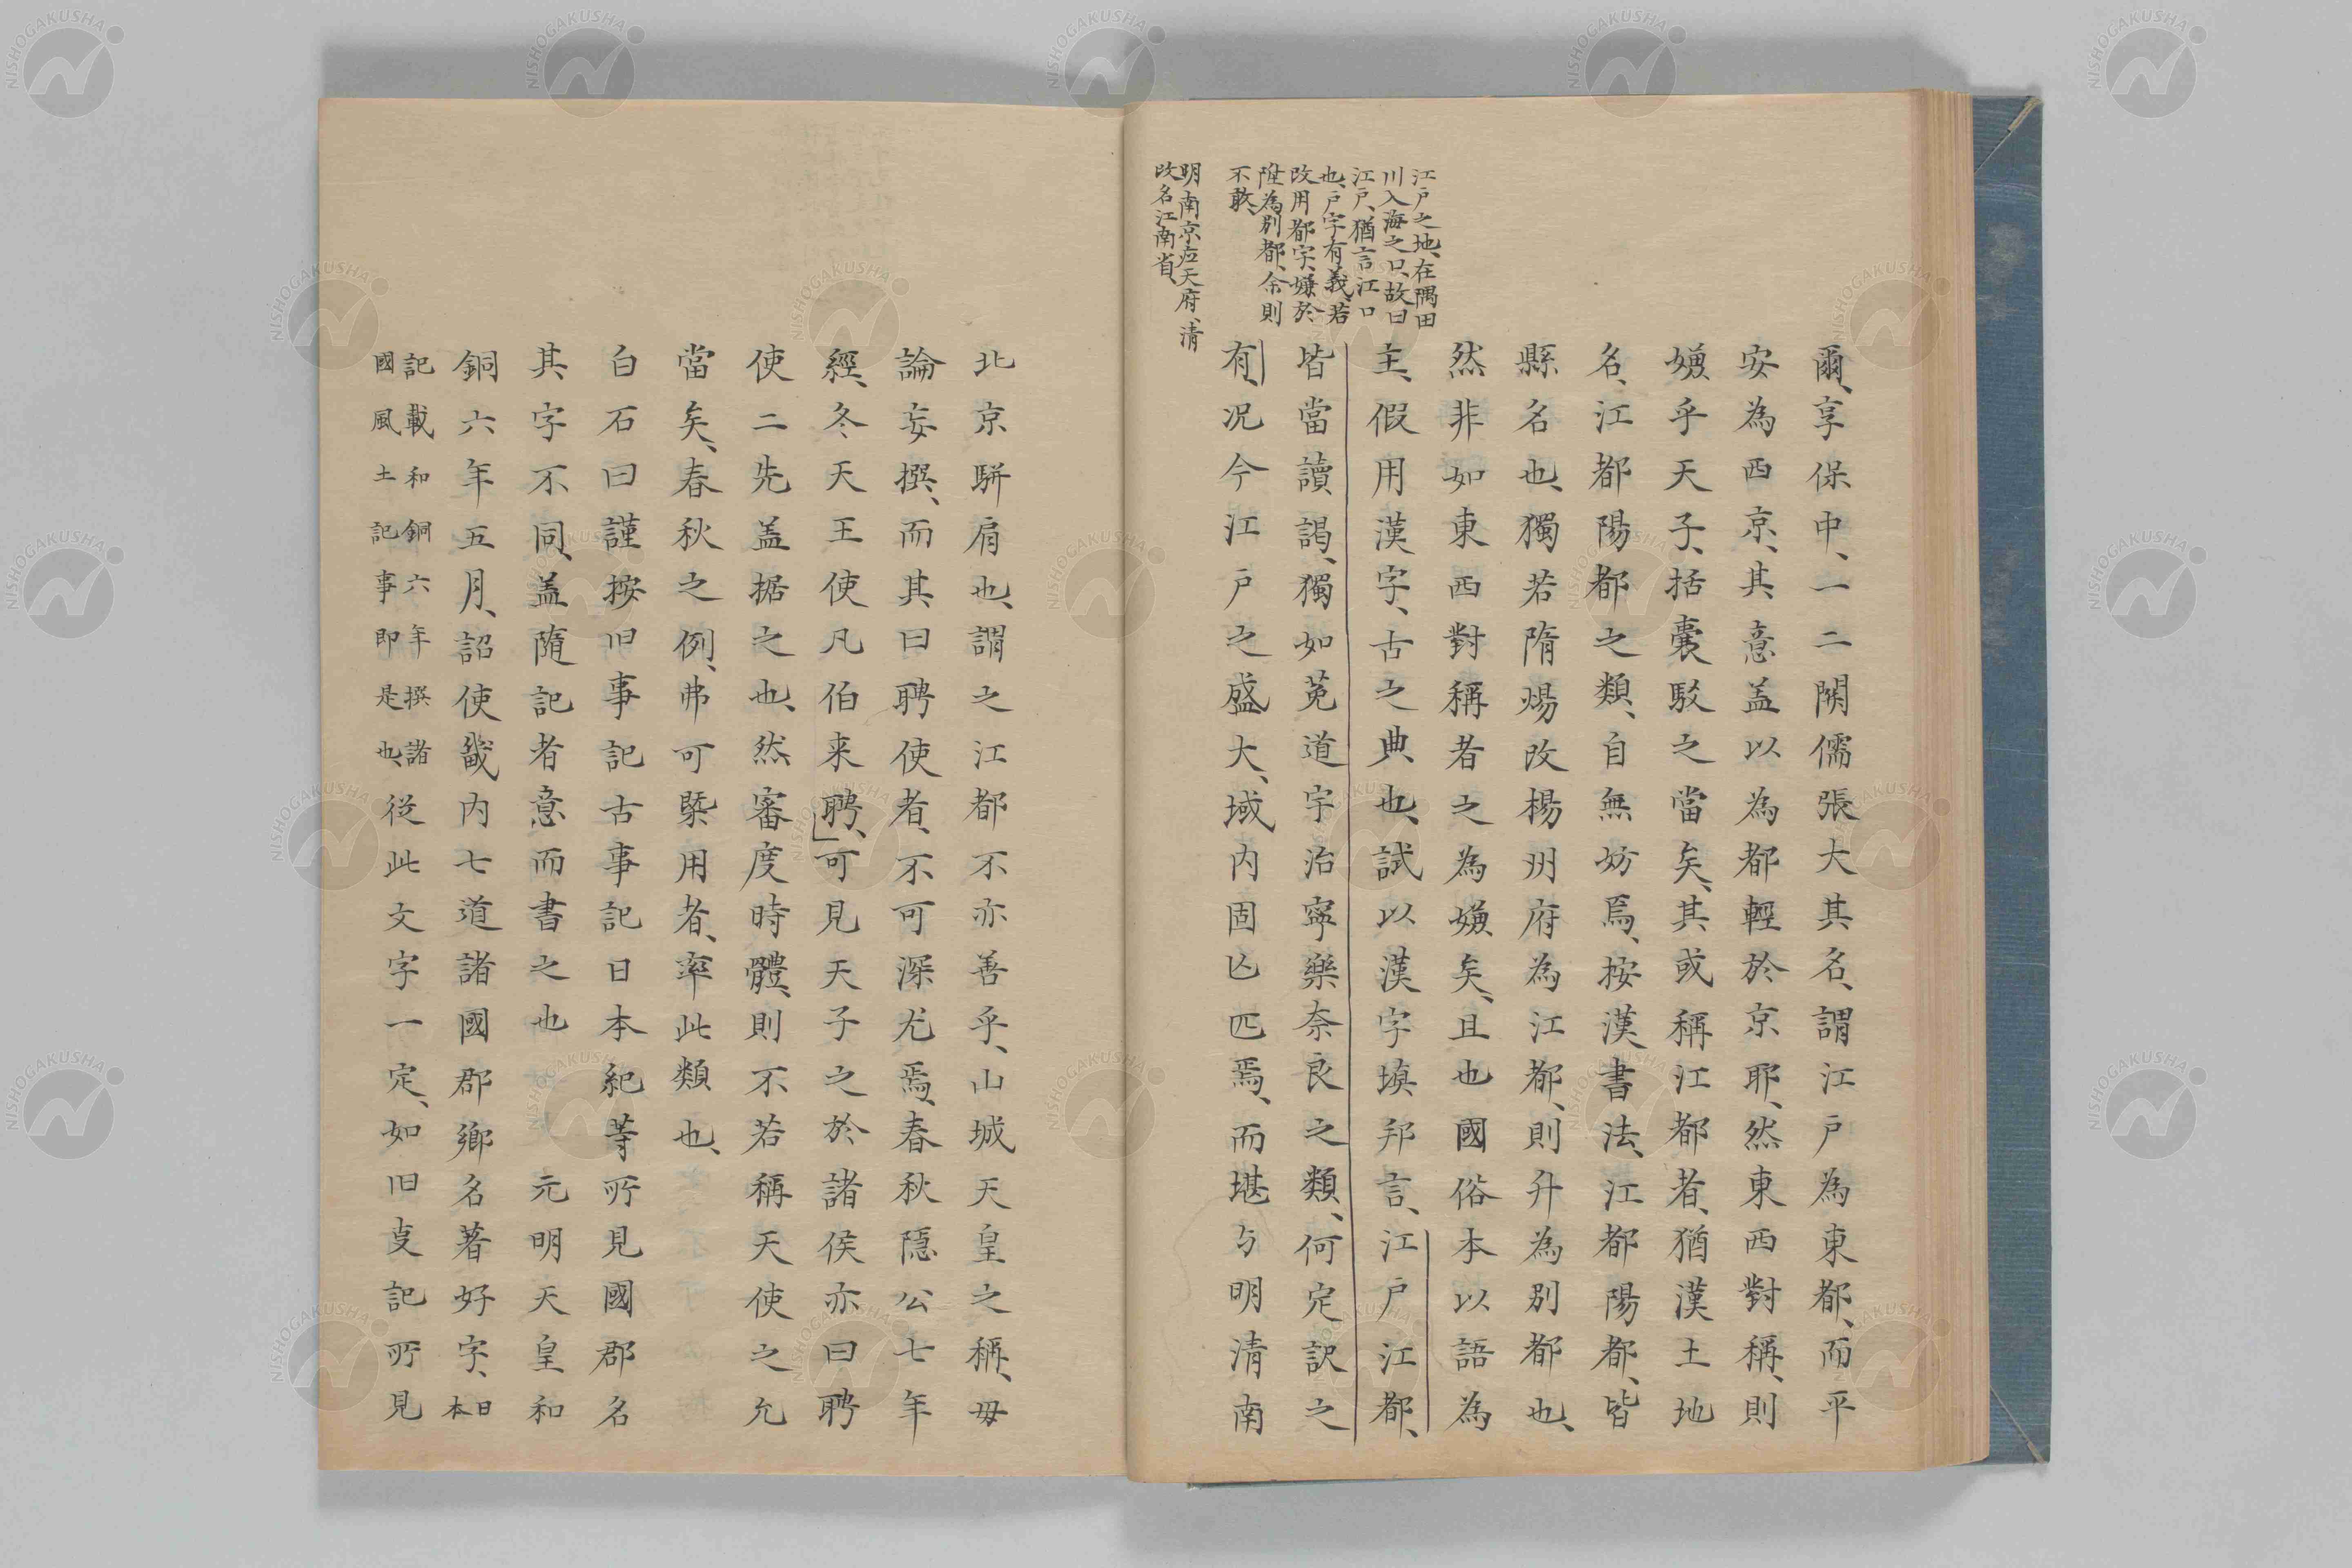 江戸之地、在隅田
川入海之口、故曰
江戸、猶言江口
也、戸字有義、若
改用都字、嫌於
陞為別都、余則
不敢、
明南京応天府、清
改名江南省、
爾、享保中、一二閑儒張大其名、謂江戸為東都、而平
安為西京、其意盖以為都輕於京耶、然東西對稱、則
嫌乎天子、括嚢駁之當矣、其或稱江都者、猶漢土地
名、江都陽都之類、自無妨焉、按漢書法、江都陽都、皆
縣名也、獨若隋煬改楊州府為江都、則升為別都也、
然非如東西對稱者之為嫌矣、且也國俗本以語為
主、假用漢字、古之典也、試以漢字塡邦言、江戸江都、
皆當讀謁、獨如菟道宇治寧樂奈良之類、何定訳之
有、况今江戸之盛大、域内固亡匹焉、而堪与明清南
北京駢肩也、謂之江都不亦善乎、山城天皇之稱、毋
論妄撰、而其曰聘使者、不可深尤焉、春秋隠公七年
經、冬天王使凡伯来聘、可見天子之於諸侯亦曰聘
使二先盖据之也、然審度時體、則不若稱天使之允
當矣、春秋之例、弗可槩用者、率此類也、
白石曰謹按旧事記古事記日本紀等所見國郡名
其字不同、盖隨記者意而書之也 元明天皇和
銅六年五月、詔使畿内七道諸國郡鄉名著好字、日本
記載和銅六年撰諸
國風土記事即是也、從此文字一定、如旧叓記所見